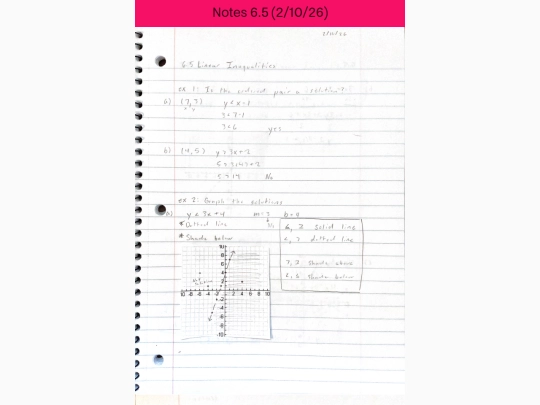 Notes 6.5 (2/10/26)
2/10/26
6.5 Linear Inequalities
ex 1: Is the ordered pair a solution?
a) (7,3) y < x - 1
3 < 7-1
3 < 6 yes
b) (4,5) y > 3x + 2
5 > 3(4) + 2
5 > 14 No
ex 2: Graph the solutions
a) y < 3x + 4 m = 3 b = 4
* Dotted line
* Shade below
≤, ≥ Solid line
<, > dotted line
>, ≥ Shade above
<, ≤ Shade below